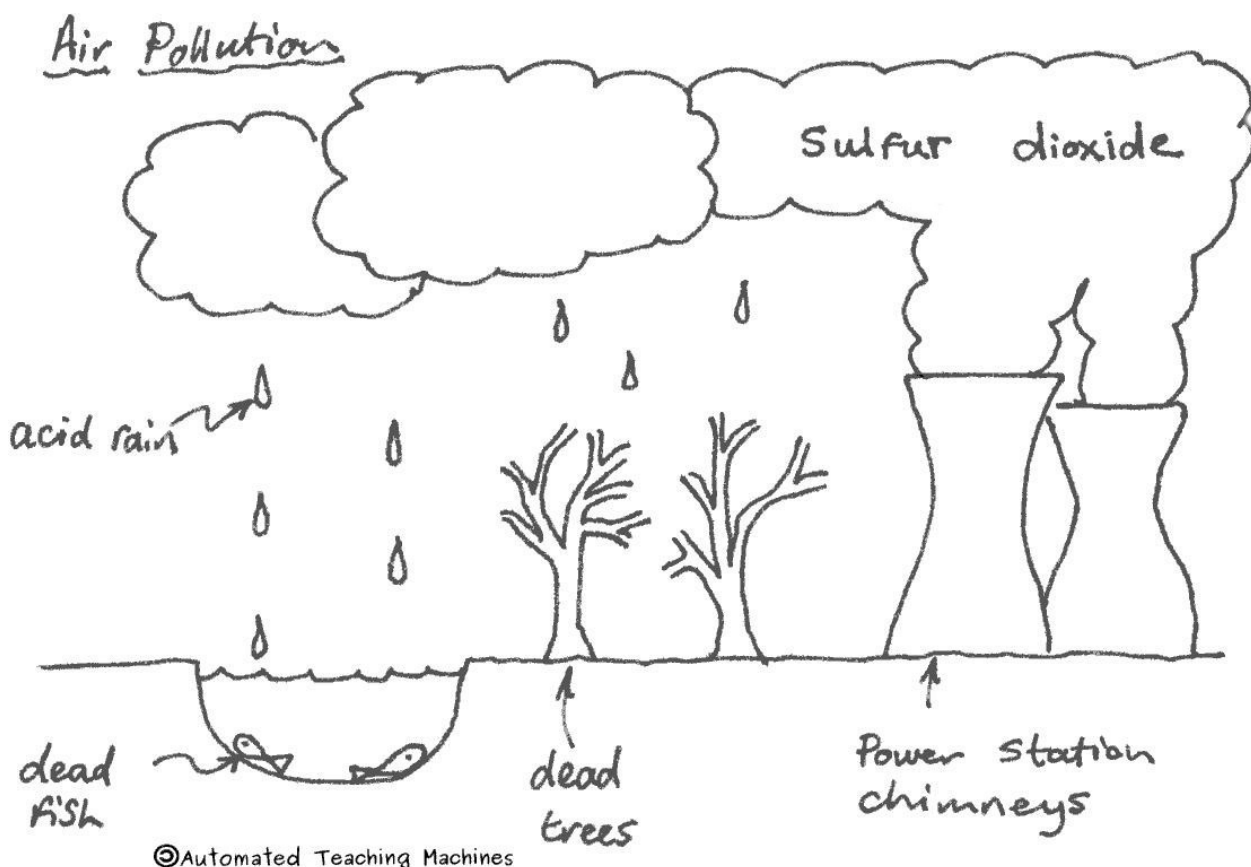 Air Pollution
Sulfur dioxide
acid rain
dead
fish
dead
trees
Power Station
chimneys
©Automated Teaching Machines